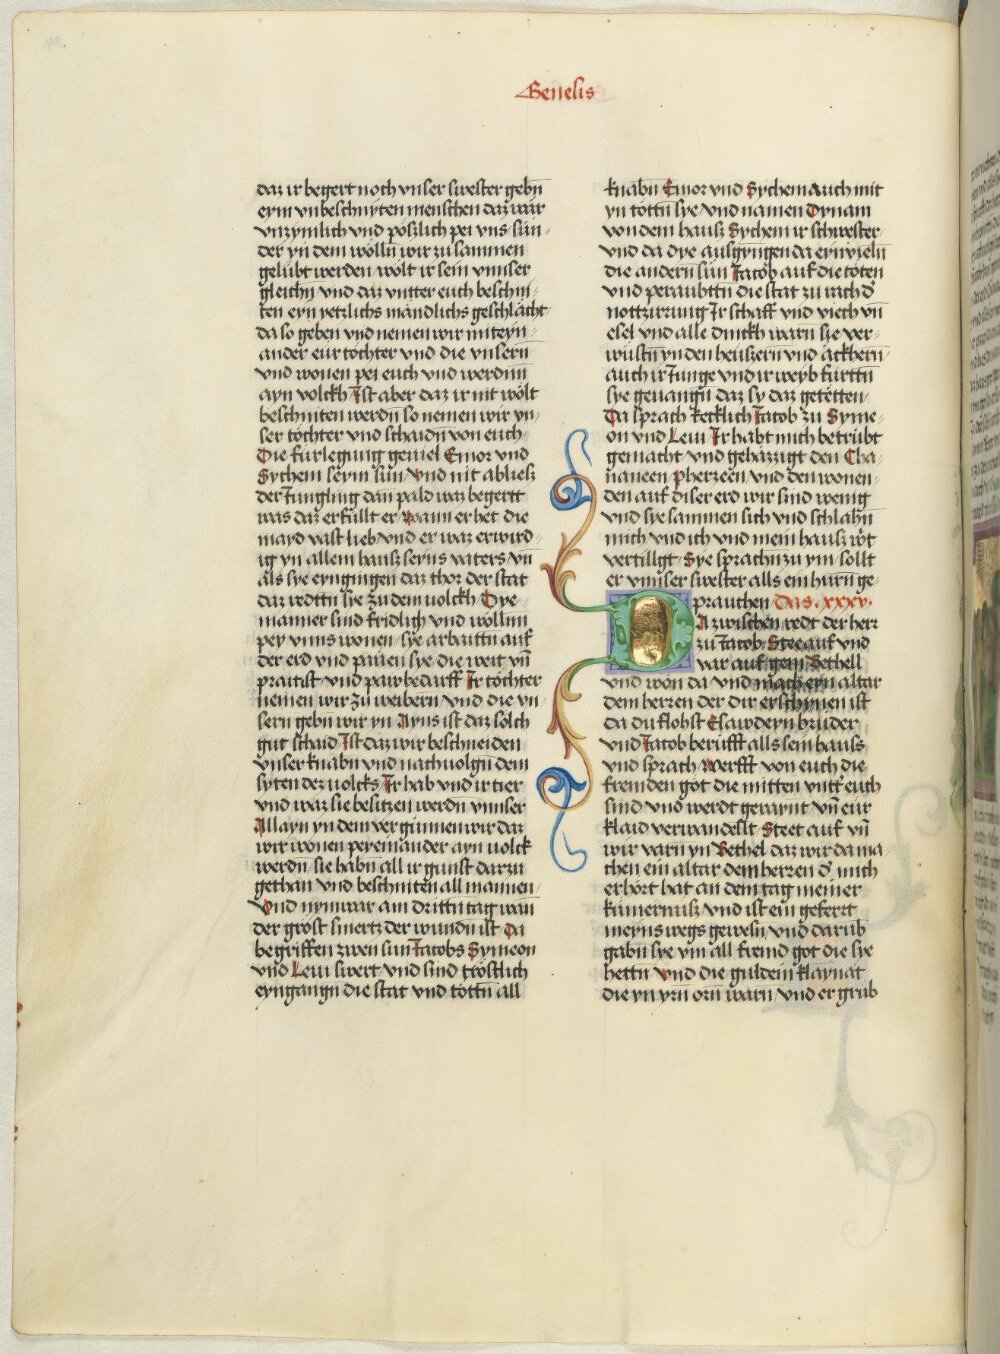 Genesis
daz ir begert noch vnser swester gebn̄
eym vnbeschnyten menschen daz wär
vnzymlich vnd pöszlich pei vns sun-
der yn dem wölln̄ wir zu sammen
gelübt werden wölt ir sein vnnser
gleichn̄ vnd daz vntter euch beschni-
ten eyn yetzlichs mändlichs geschlächt
da so geben vnd nemen wir miteyn-
ander eur töchter vnd die vnsern̄
vnd wonen pei euch vnd werdn̄n
ayn volckh Ist aber daz ir nit wölt
beschniten werdn̄ so nemen wir vn-
ser töchter vnd schaidn̄ von euch
Die fürlegung geuiel Emor vnd
Sychem seym sun vnd nit abliesz
der Jungling dan pald waz begertt
was daz erfüllt er wann er het die
mayd vast lieb vnd er waz erwird-
ig yn allem hausz seyns vaters vn̄
als sye eyngingen daz thor der stat
daz redttn̄ sye zu dem volckh Dye
männer sind fridlich vnd wöllnn
pey vnns wonen sye arbaittn̄ auf
der erd vnd pauen sye die weit vn̄
praitist vnd paw bedarff Ir töchter
nemen wir zu weibern vnd die vn-
sern gebn̄ wir yn Ayns ist daz sölch
gut schaid Ist daz wir beschneiden
vnser knabn̄ vnd nachuolgn̄ dem
syten dez volcks Ir hab vnd ir tier
vnd waz sie besitzen werdn̄ vnnser
Allayn yn dem vergünnen wir daz
wir wonen pey einander ayn volck
werdn̄ sie habn̄ all ir gunst darzu
gethan vnd beschniten all mannen-
Vnd nym war am drittn̄ tag wan̄
der gröst smertz der wundn̄ ist Da
begriffen zwen sun Jacobs Symeon
vnd Leui swert vnd sind tröstlich
eyngangn̄ die stat vnd tottn̄ all
knabn̄ Emor vnd Sychem auch mit
yn tottn̄ sye vnd namen Dynam
von dem hausz Sychem ir schwester
vnd da dye ausgyngen da eynvieln̄
die andern sun Jacob auf die töten
vnd peraubttn̄ die stat zu rach d̾
nottzurrung Ir schaff vnd viech vn̄
esel vnd alle dinckh warn sye ver-
wüstn̄ yn den heuszern vnd äckhern
auch ir Junge vnd ir weyb fürttn̄
sye geuangn̄ daz sy daz getetten-
Da sprach kecklich Jacob zu Syme-
on vnd Leui Ir habt mich betrübt
gemacht vnd gehäzzigt den Cha-
naneen pherezeen vnd den wonen-
den auf diser erd wir sind wenig
vnd sye sammen sich vnd schlahn̄
mich vnd ich vnd mein hausz w̾t
vertillgt Sye sprachn̄ zu ym sollt
er vnnser swester alls ein hurn ge-
prauchen Das .xxxv.
DA zwischen redt der herr
zu Jacob Stee auf vnd
var auf gein Bethell
vnd won da vnd mach eyn altar
dem herren der dir erschynen ist
da du flohst Esaw deyn bruder
vnd Jacob berüfft alls sein hauss
vnd sprach Werfft von euch die
fremden göt die mitten vntt̾ euch
sind vnd werdt geraynt vn̄ eur
klaid verwandellt Steet auf vn̄
wir varn yn Bethel daz wir da ma
chen ein altar dem herren d̾ mich
erhört hat an dem tag meiner
kümernusz vnd ist ein gefertt
meyns wegs gewesn̄ vnd darüb
gabn̄ sye ym all fremd göt die sye
hettn̄ vnd die guldein klaynat
die yn yrn orn̄ warn vnd er grub